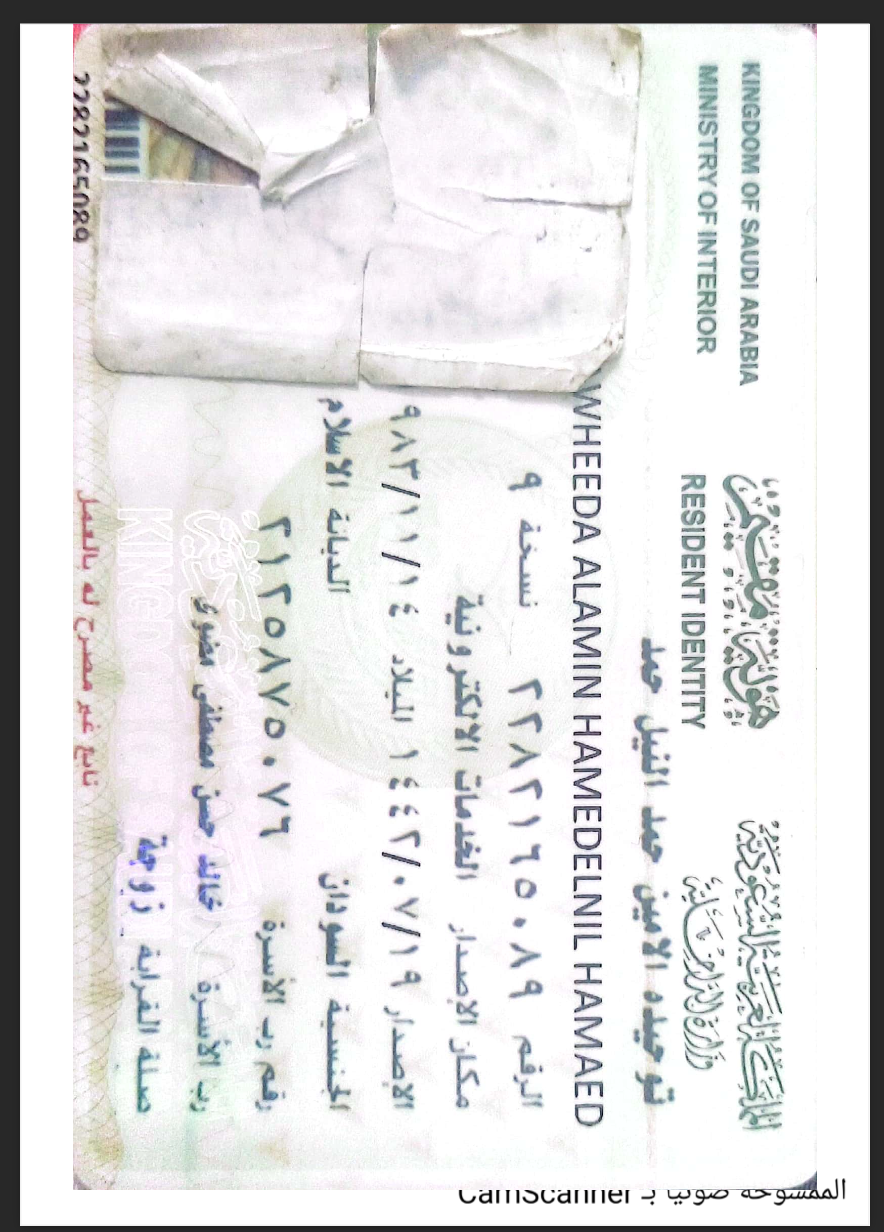 المملكة العربية السعودية
وزارة الداخلية
هوية مقيم
RESIDENT IDENTITY
KINGDOM OF SAUDI ARABIA
MINISTRY OF INTERIOR
توحيده الامين حمد النيل حمد
WHEEDA ALAMIN HAMEDELNIL HAMAED
الرقم ٢٢٨٢١٦٥٠٨٩ نسخة ٩
مكان الإصدار الخدمات الالكترونية
الإصدار ١٤٤٢/٠٧/١٩ الميلاد ٩٨٣/١١/١٤
الجنسية السودان الديانة الاسلام
رقم رب الأسرة ٢١٢٥٨٧٥٠٧٦
رب الأسرة خالد حسن مصطفى مضوى
صلة القرابة زوجة
تابع غير مصرح له بالعمل
2282165089
الممسوحة ضوئيا بـ CamScanner